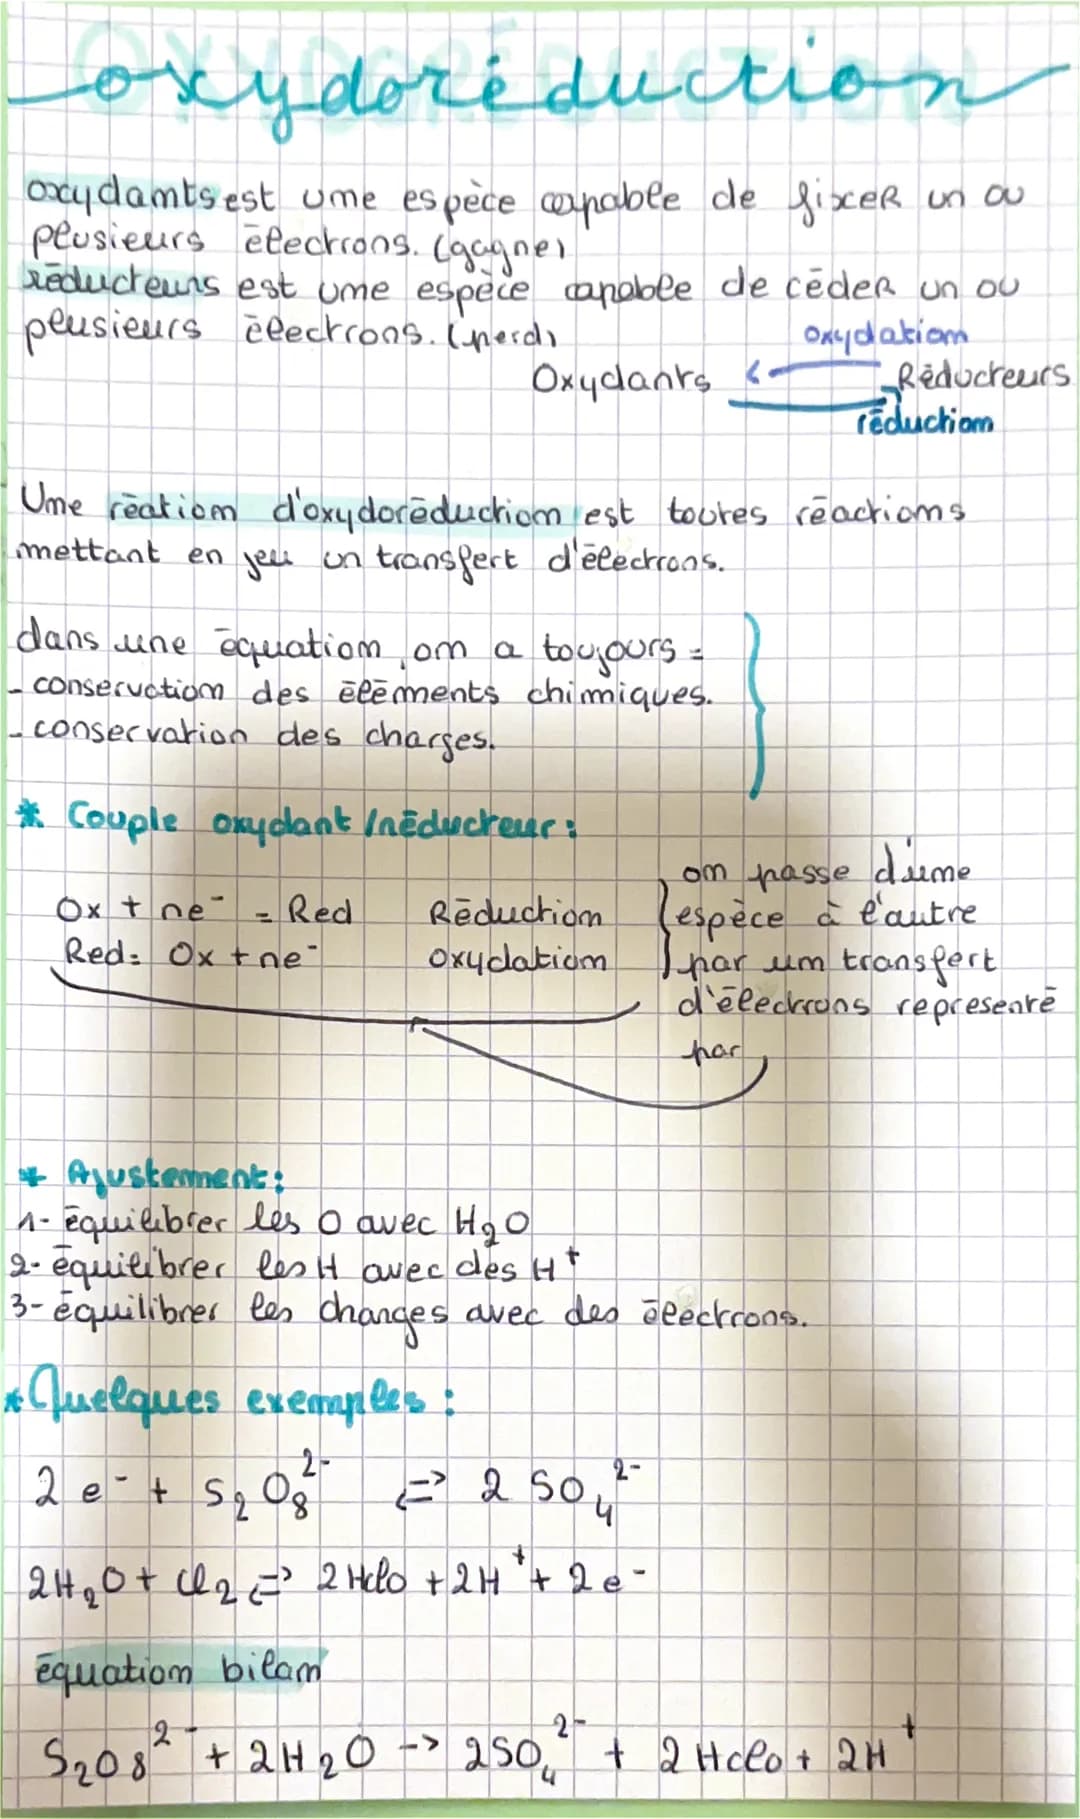 oxydoréduction
oxydants est une espèce capable de fixer un ou
plusieurs électrons. (gagne)
réducteurs est une espèce capable de céder un ou
plusieurs électrons. (perd)
oxydation
Oxydants Réducteurs
réduction
Une réation d'oxydoréduction est toutes réactions
mettant en jeu un transfert d'électrons.
dans une équation, on a toujours =
- conservation des éléments chimiques.
- conservation des charges.
* Couple oxydant/réducteur :
Ox + ne⁻ = Red Réduction
Red = Ox + ne⁻ oxydation
on passe d'une
espèce à l'autre
par un transfert
d'électrons representé
par
* Ajustement :
1- équilibrer les O avec H₂O
2- équilibrer les H avec des H⁺
3- équilibrer les charges avec des électrons.
* Quelques exemples :
2 e⁻ + S₂O₈²⁻ ⇌ 2 SO₄²⁻
2H₂O + Cl₂ ⇌ 2 HClO + 2H⁺ + 2e⁻
équation bilan
S₂O₈²⁻ + 2H₂O -> 2SO₄²⁻ + 2 HClO + 2H⁺